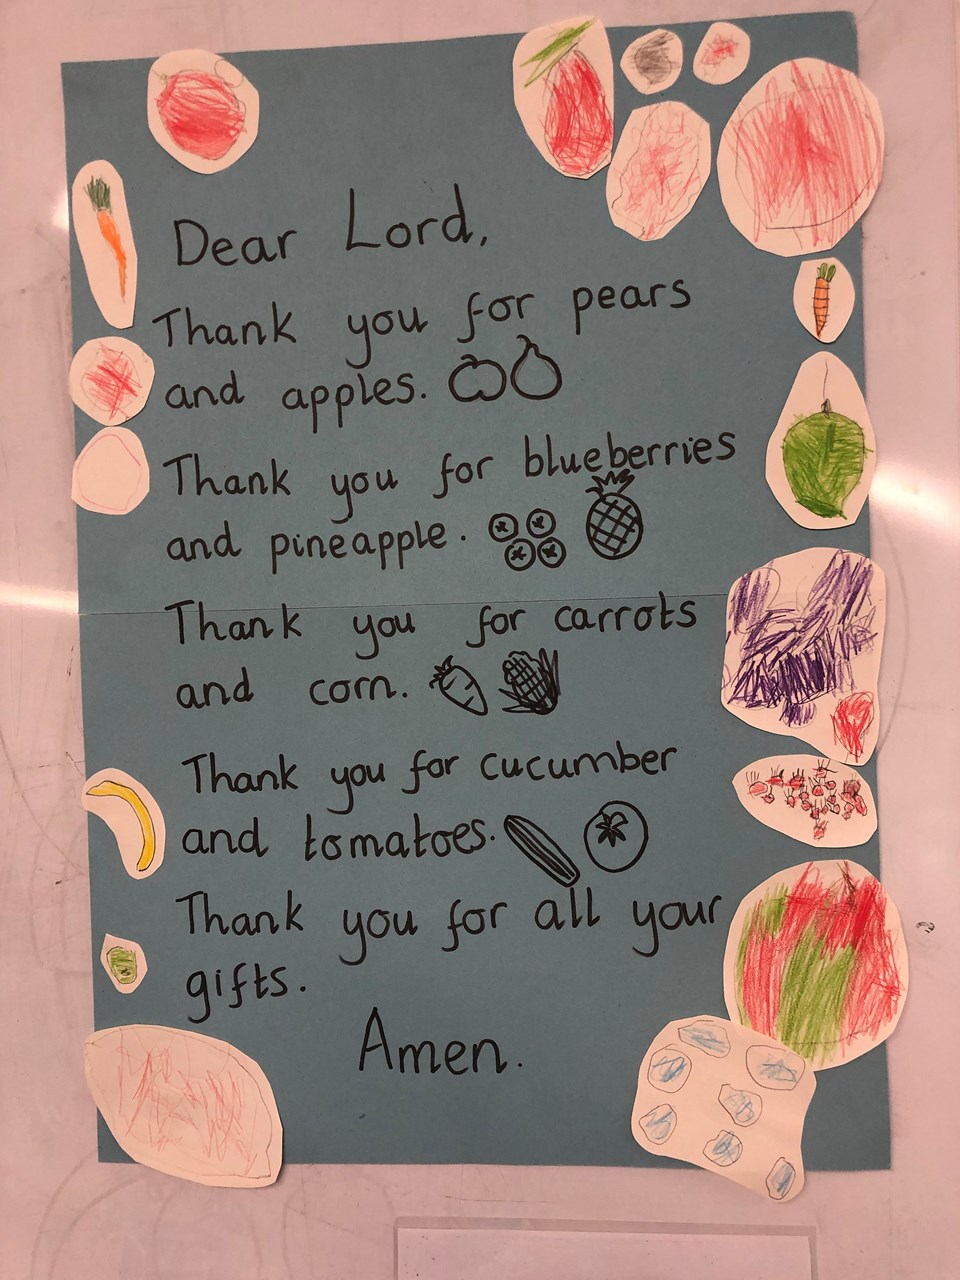 Dear Lord,
Thank you for pears
and apples.
Thank you for blueberries
and pineapple.
Thank you for carrots
and corn.
Thank you for cucumber
and tomatoes.
Thank you for all your
gifts.
Amen.